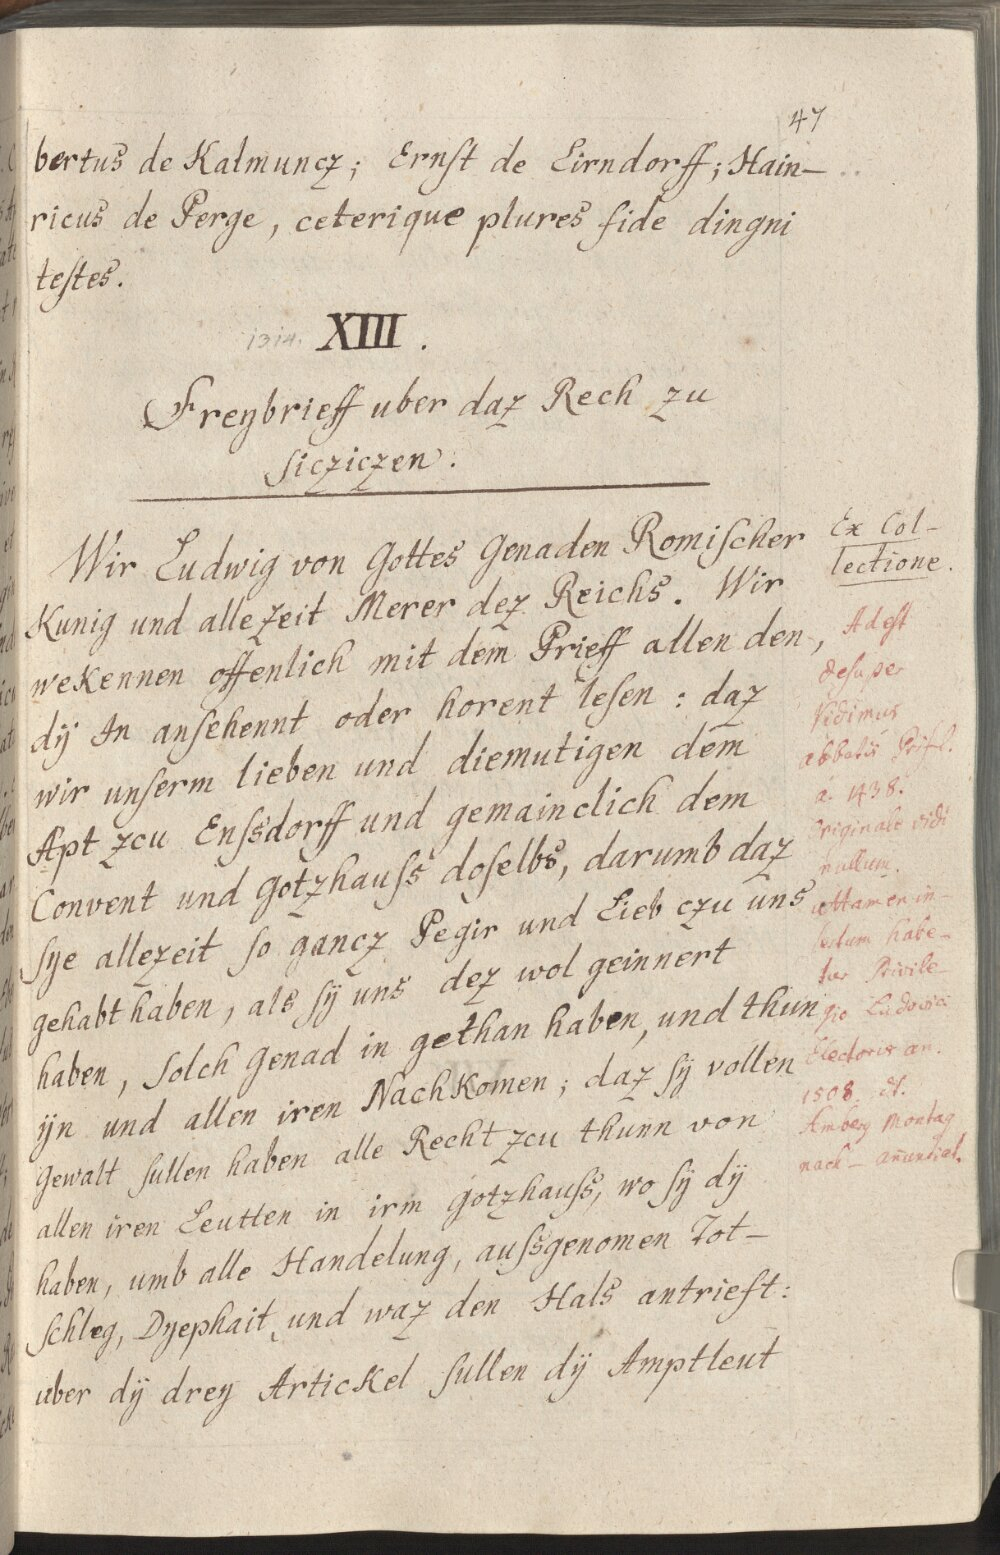 47
bertus de Kalmuncz; Ernst de Eirndorff; Hain-
ricus de Perge, ceterique plures fide dingni
testes.
1314. XIII.
Freybrieff uber daz Rech zu
sicziczen.
Wir Ludwig von Gottes Genaden Romischer
Kunig und allezeit Merer dez Reichs. Wir
wekennen offenlich mit dem Prieff allen den,
dÿ In ansehennt oder horent lesen: daz
wir unserm lieben und diemutigen dem
Apt zcu Enssdorff und gemainclich dem
Convent und Gotzhauss doselbs, darumb daz
sye allezeit so gancz Pegir und Lieb czu uns
gehabt haben, als sÿ uns dez wol geinnert
haben, solch Genad in gethan haben, und thun
ÿn und allen iren Nachkomen; daz sÿ vollen
Gewalt sullen haben alle Recht zcu thunn von
allen iren Leutten in irm Gotzhauss, wo sÿ dÿ
haben, umb alle Handelung, aussgenomen Tot-
schleg, Dyephait und waz den Hals antrieft:
uber dÿ drey Artickel sullen dÿ Amptleut
Ex Col-
lectione.
Adest
desuper
Vidimus
abbatis
a. 1438.
Originale vidi
nullum.
attamen in-
sertum habe-
tur Privile-
gio Ludovici
Electoris an.
1508. dt.
Amberg Montag
nach annuntiat.